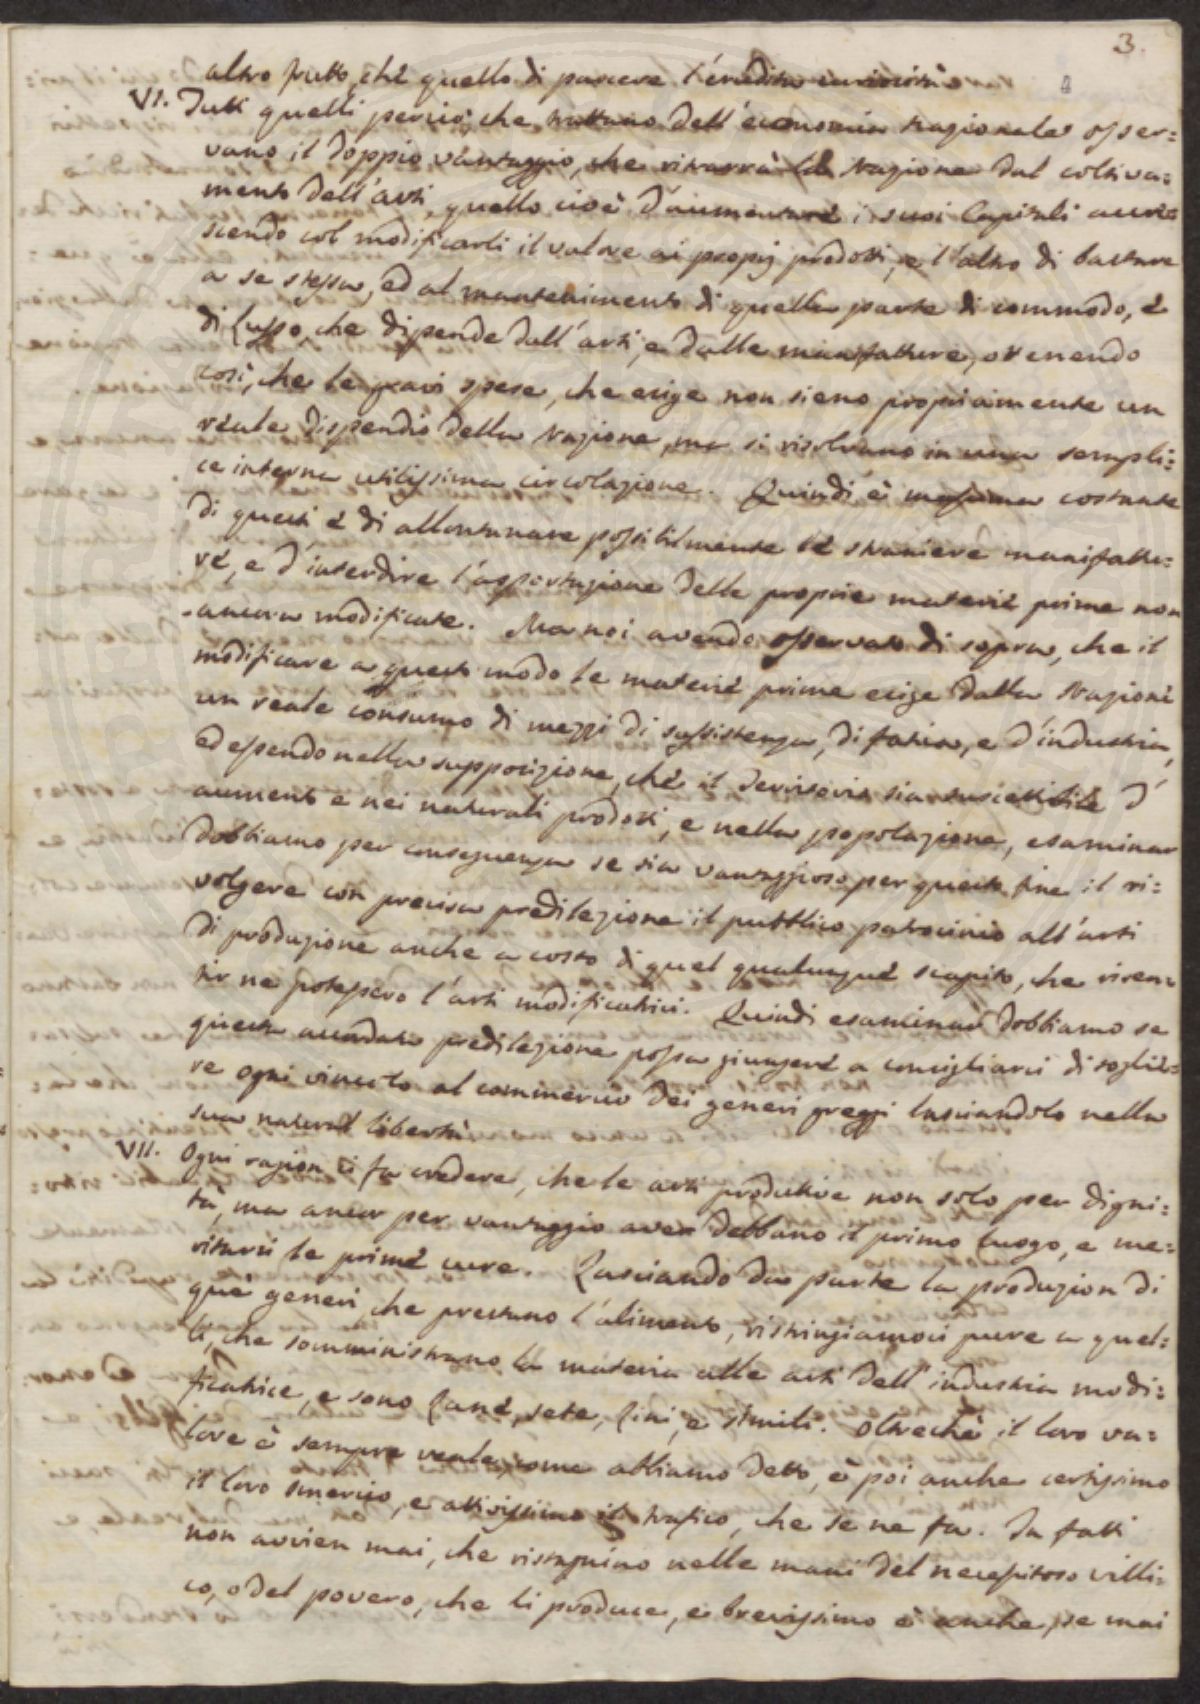 3.
altro frutto, che quello di pascere l'erudita curiosità
VI. Tutti quelli perciò che trattano dell'economia Nazionale osser=
vano il doppio vantaggio, che ritrarrà la Nazione dal coltiva=
mento dell'arti, quello cioè d'aumentare i suoi Capitali accre=
scendo col modificarli il valore ai proprj prodotti, e l'altro di bastare
a se stessa, ed al mantenimento di quella parte di commodo, e
di lusso, che dipende dall'arti, e dalle manifatture, ottenendo
così, che le gravi spese, che esige non sieno propriamente un
reale dispendio della Nazione, ma si risolvano in una sempli=
ce interna utilissima circolazione. Quindi è massima costante
di questi è di allontanare possibilmente le straniere manifattu=
re, e d'interdire l'asportazione delle proprie materie prime non
ancora modificate. Ma noi avendo osservato di sopra, che il
modificare a questo modo le materie prime esige dalla Nazione
un reale consumo di mezzi di sussistenza, di fatica, e d'industria,
ed essendo nella supposizione, che il Territorio sia suscettibile d'
aumento e nei naturali prodotti, e nella popolazione, esaminar
dobbiamo per conseguenza se sia vantaggioso per questo fine il ri=
volgere con precisa predilezione il pubblico patrocinio all'arti
di produzione anche a costo di quel qualunque scapito, che risen=
tir ne potessero l'arti modificatrici. Quindi esaminar dobbiamo se
questa accordata predilezione possa giungere a consigliarci di toglie=
re ogni vincolo al commercio dei generi greggi lasciandolo nella
sua natural libertà
VII. Ogni ragion ci fa credere, che le arti produttive non solo per digni=
tà, ma ancor per vantaggio aver debbano il primo luogo, e me=
ritarsi le prime cure. Lasciando da parte la produzion di
que' generi, che prestano l'alimento, ristringiamoci pure a quel=
li, che somministrano la materia alle arti dell'industria modi=
ficatrice, e sono Lane, sete, Lini, e simili. Oltrechè il loro va=
lore è sempre reale, come abbiamo detto, è poi anche certissimo
il loro smercio, e attivissimo il trafico, che se ne fa. In fatti
non avvien mai, che ristagnino nelle mani del necessitoso villi=
co, o del povero, che li produce, e brevissimo è anche, se mai